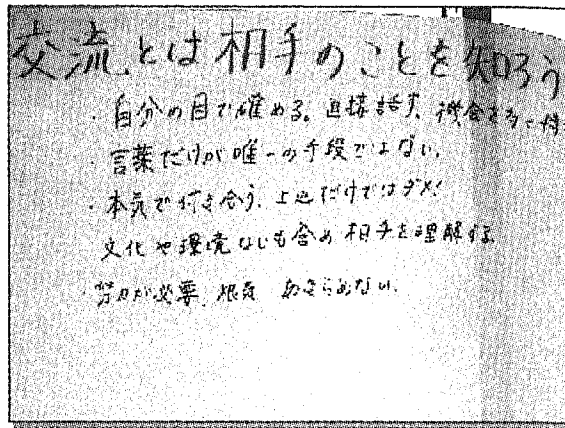 交流とは相手のことを知ろう
・自分の目で確める。直接話す、機会を多く持
言葉だけが唯一の手段ではない。
・本気で付き合う、上辺だけではダメ!
文化や環境なども含め相手を理解する
・努力が必要、根気 あきらめない。